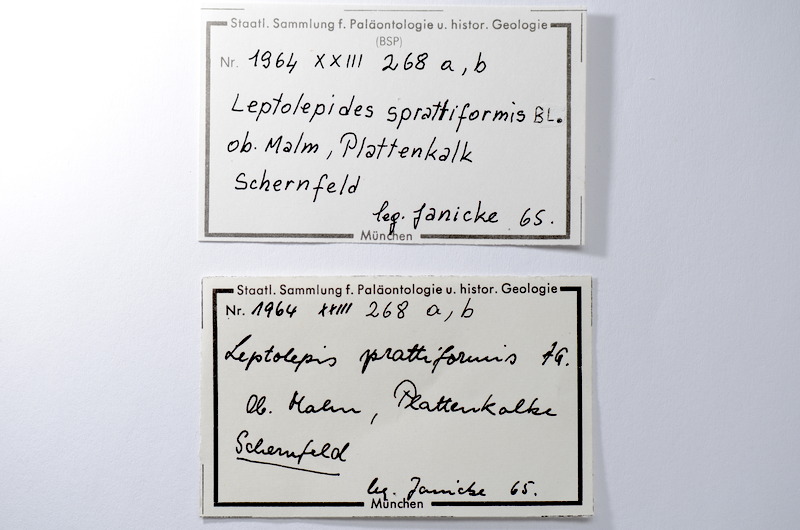 Staatl. Sammlung f. Paläontologie u. histor. Geologie
(BSP)
Nr. 1964 XXIII 268 a, b
Leptolepides sprattiformis BL.
ob. Malm, Plattenkalk
Schernfeld
leg. Janicke 65.
München
Staatl. Sammlung f. Paläontologie u. histor. Geologie
Nr. 1964 XXIII 268 a, b
Leptolepis sprattiformis AG.
Ob. Malm, Plattenkalke
Schernfeld
leg. Janicke 65.
München